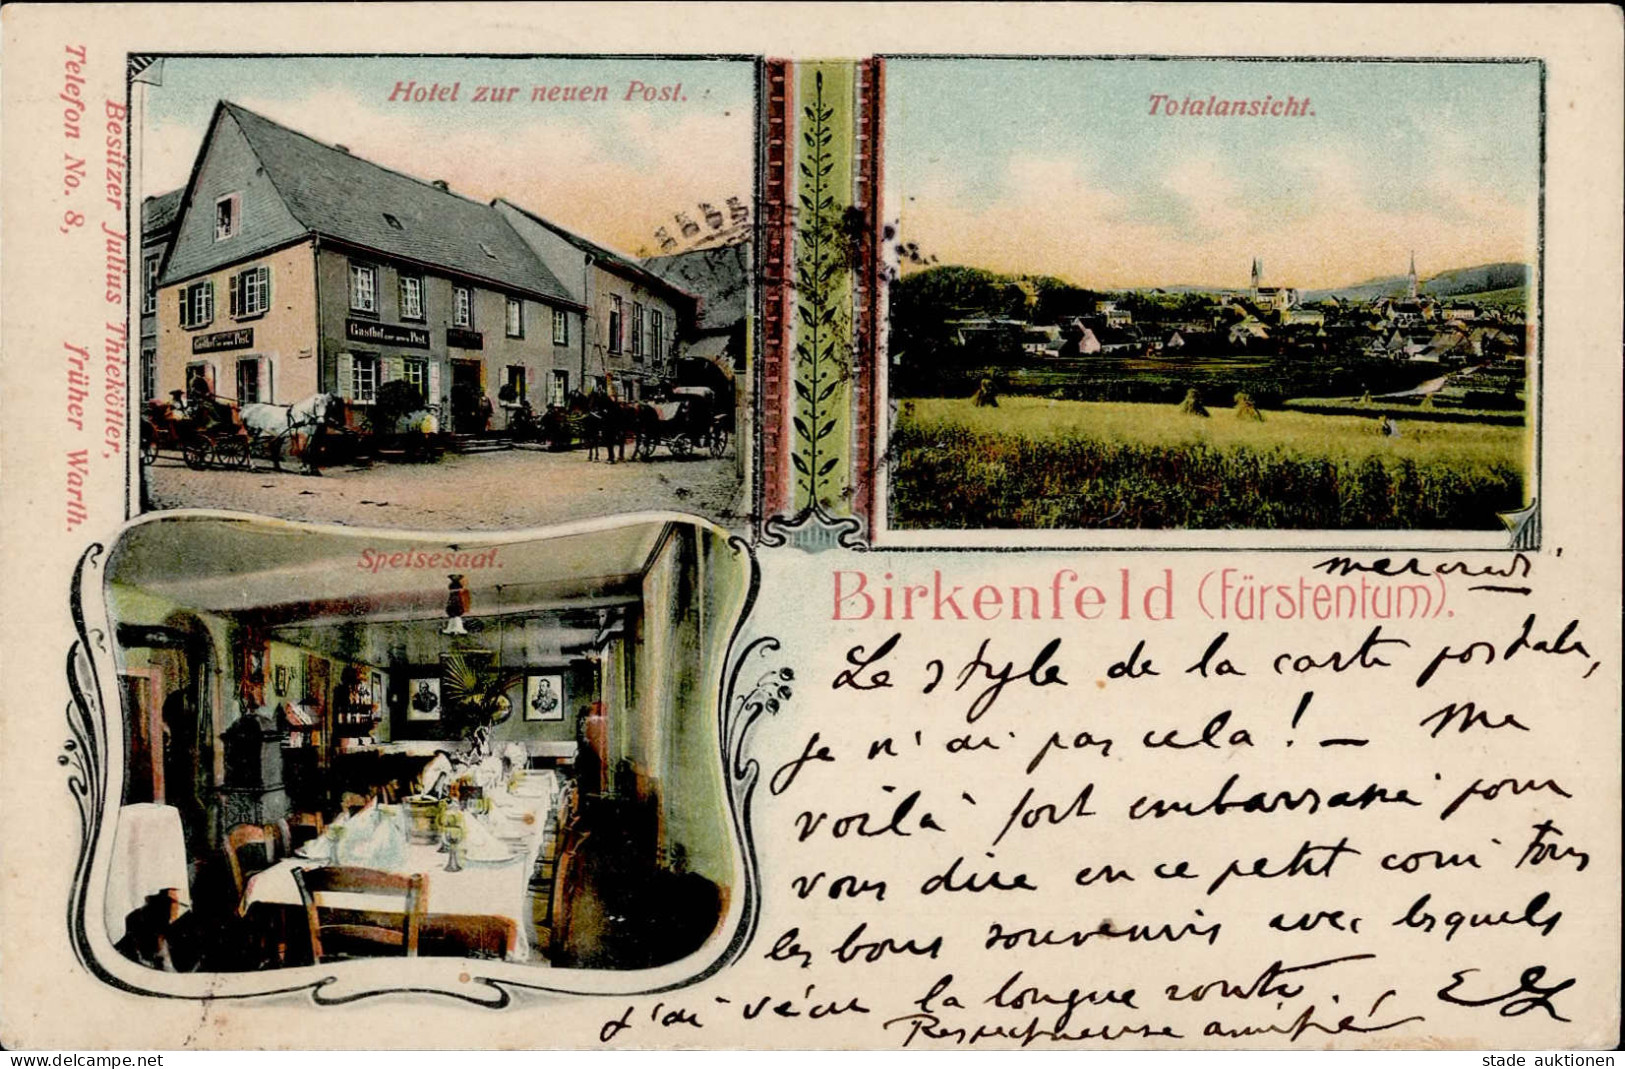 Telefon No. 8, früher Warth.
Besitzer Julius Thiekötter,
Hotel zur neuen Post.
Gasthof zur neuen Post.
Gasthof zur neuen Post.
Totalansicht.
Speisesaal.
Birkenfeld (Fürstentum).
mercredi
Le style de la carte postale,
je n'ai pas cela! — Me
voilà fort embarrassé pour
vous dire en ce petit coin tous
les bons souvenirs avec lesquels
j'ai vécu la longue route.
Respectueuse amitié
stade auktionen